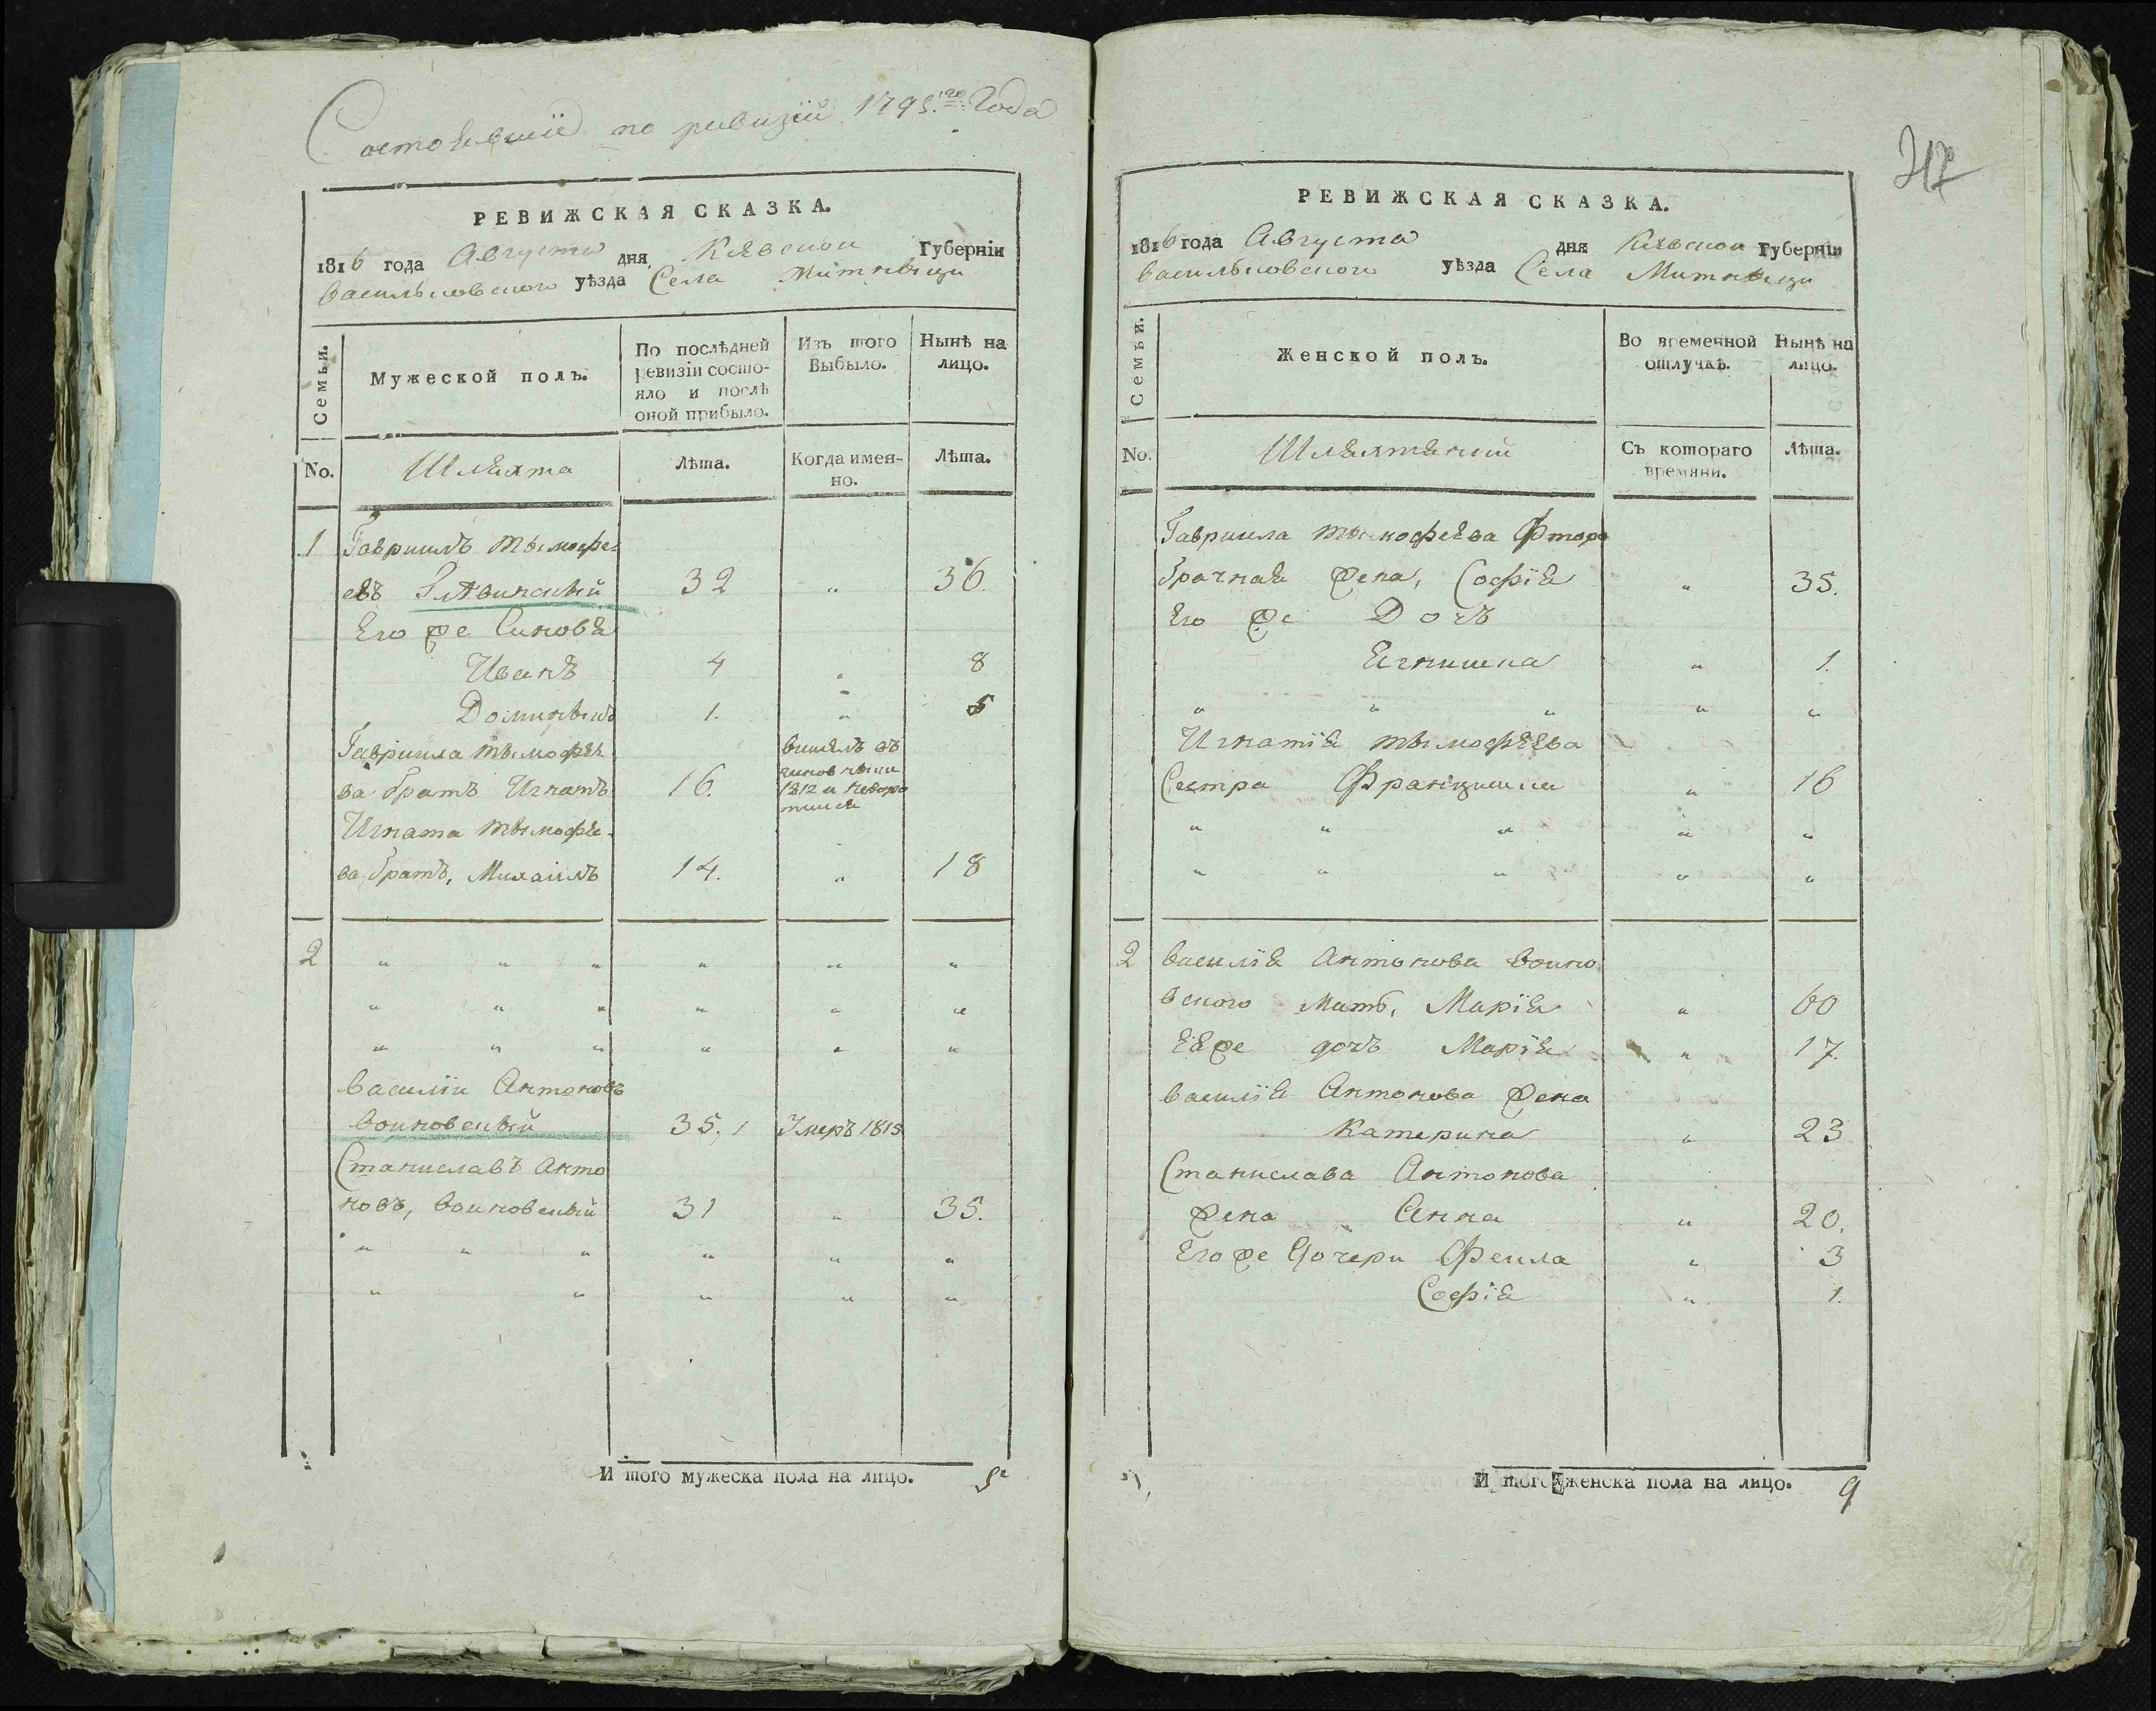 Состоявшіи по ревизіи 1795.го Года
РЕВИЖСКАЯ СКАЗКА.
1816 года Августа дня Кіевской Губерніи
васильковскаго уѣзда Села Мытныци
Семьи.
Мужеской полъ.
По послѣдней ревизіи состояло и послѣ оной прибыло.
Изъ того Выбыло.
Нынѣ на лицо.
No.
Шляхта
Лѣта.
Когда именно.
Лѣта.
1 Гавриилъ тымофе-
евъ 32 „ 36.
Его же Синовя
Иванъ 4 „ 8
Доминѣкъ 1. „ 5
Гавріила тымофѣе
ва братъ Игнатъ 16. 1812
Игната тымофѣе-
ва братъ, Михаилъ 14. „ 18
2 „ „ „ „ „ „
„ „ „ „ „ „
„ „ „ „ „ „
василіи Антоновъ
воиновскый 35. Умеръ 1815
Станиславъ Анто
новъ, воиновскый 31 „ 35.
„ „ „ „ „ „
„ „ „ „ „
И того мужеска пола на лицо. 5
217
РЕВИЖСКАЯ СКАЗКА.
1816 года Августа дня Кіевской Губерніи
васильковского уѣзда Села Мытныци
Семьи.
Женской полъ.
Во временной отлучкѣ.
Нынѣ на лицо.
No.
Шляхтянки
Съ котораго времяни.
Лѣта.
Гавриила тымофеева фтора
брачная жена, Софія „ 35.
Его же Дочъ
Ягнишка „ 1.
„ „ „ „ „
Игнатія тымофѣева
Сестра Францишка „ 16
„ „ „ „ „
„ „ „ „ „
2 василія Антонова воино
вского мать, Марія „ 60
Ея же дочъ Марія „ 17.
василія Антонова жена
Катерина „ 23
Станислава Антонова
жена Анна „ 20.
Его же Дочери Фекла „ 3
Софія „ 1.
И того женска пола на лицо. 9